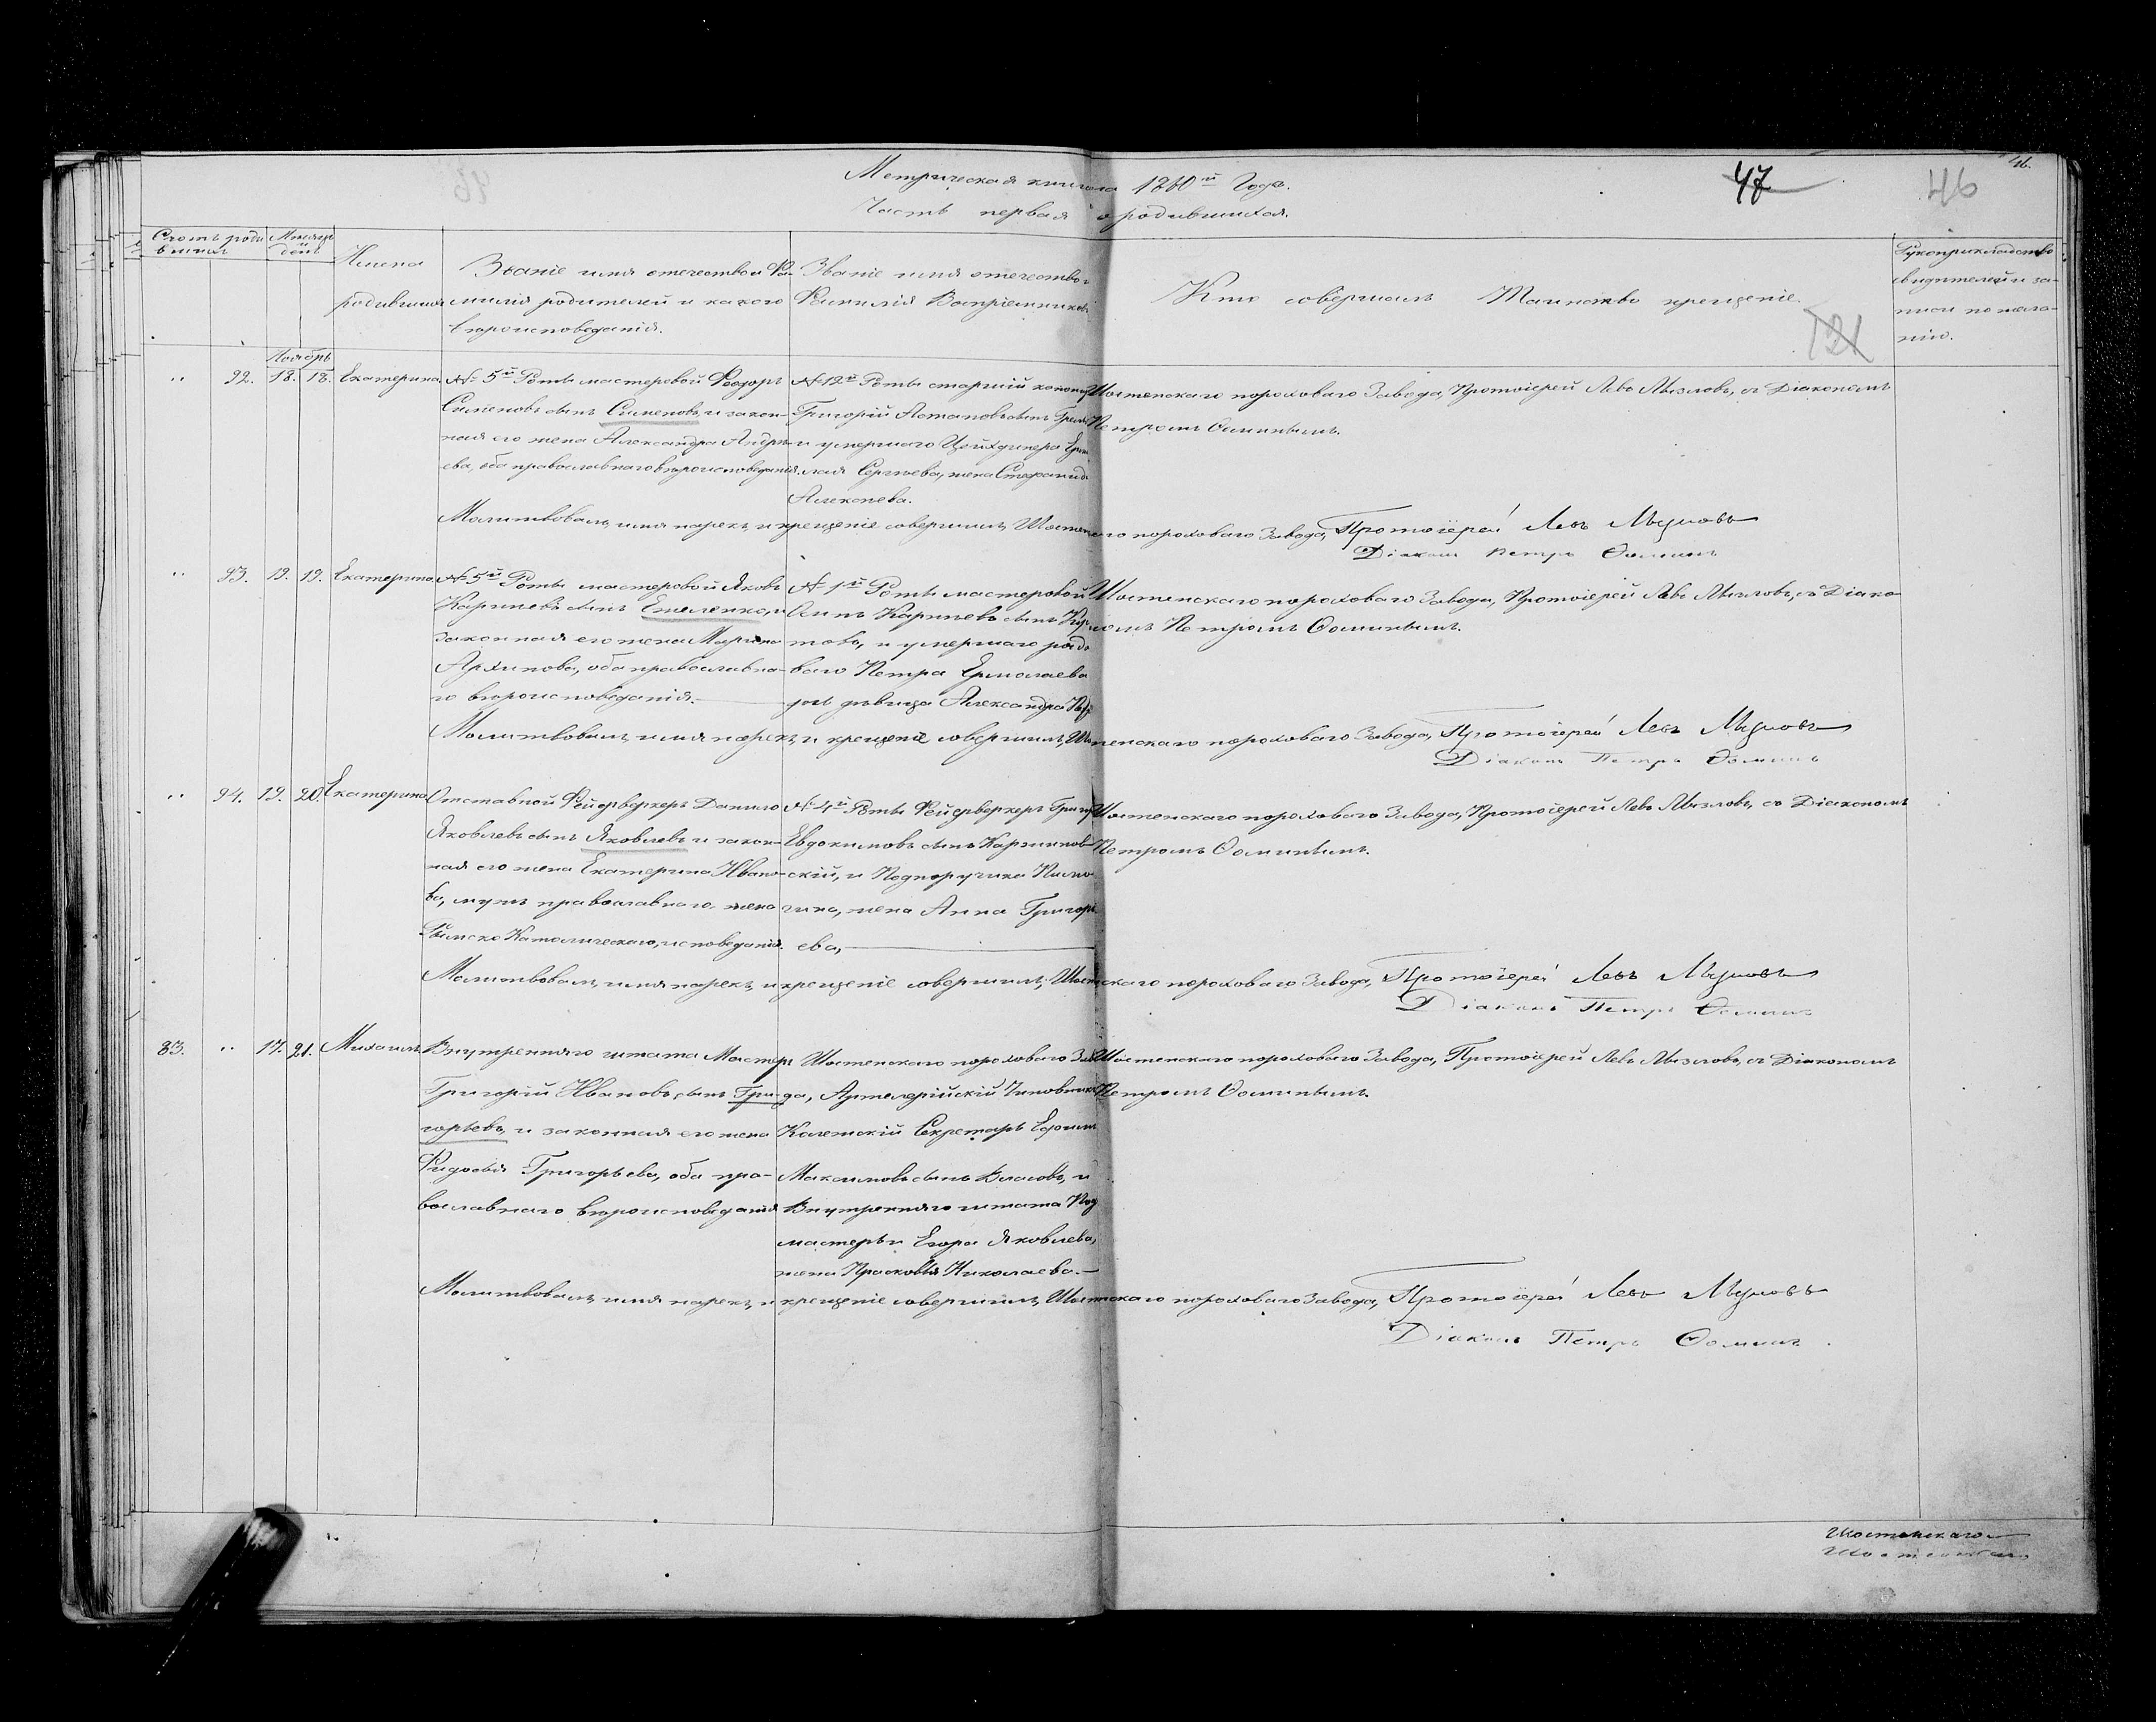 Метрическая книга 1860й Года.
Часть первая о родившихся.
47
46
46.
121
Счотъ роди
вшихся
Месяцъ и день
Имена
родившихся
Званіе имя отечество и Фа-
милія родителей и какого
вѣроисповеданія.
Званіе имя отечество и
Фамилія Воспріемниковъ
Кто совершалъ Таинство крещеніе.
Рукоприкладство
свидетелей и за-
писи по жела-
нію.
Ноябрь
92. 18. 18. Екатерина
№ 5й Роты мастеровой Феодоръ
Сименовъ сынъ Сименовъ, и закон-
ная его жена Александра Андре-
ева, оба православнаго вѣроисповеданія.
№ 12й Роты старшій
Григорій Астаповъ сынъ
и умершаго Цейхдинера
лая Сергѣева, жена Стефанида
Алексѣева.
Шостенскаго пороховаго Завода, Протоіерей Левъ Мызловъ, съ Діакономъ
Петромъ Ѳоминымъ.
Молитвовалъ, имя нарекъ, и крещеніе совершилъ, Шостенскаго пороховаго Завода, Протоіерей Левъ Мызловъ
Діаконъ Петръ Ѳоминъ
93. 19. 19. Екатерина
№ 5й Роты мастеровой Яковъ
Карпѣевъ сынъ Емеленко, и
законная его жена Марина
Архипова, оба православна-
го вѣроисповеданія.
№ 1й Роты мастеровой
Осипъ Карпѣевъ сынъ
това, и умершаго рядо
ваго Петра Ермолаева
дочь дѣвица Александра
Шостенскаго пороховаго Завода, Протоіерей Левъ Мызловъ, съ Діако-
номъ Петромъ Ѳоминымъ.
Молитвовалъ, имя нарекъ, и крещеніе совершилъ, Шостенскаго пороховаго Завода, Протоіерей Левъ Мызловъ
Діаконъ Петръ Ѳоминъ
94. 19. 20. Екатерина
Отставной Фейерверкеръ Данило
Яковлевъ сынъ Яковлевъ и закон-
ная его жена Екатерина Ивано-
ва, мужъ православнаго жена
Римско Католическаго, исповеданія.
№ 4й Роты Фейерверкеръ
Евдокимовъ сынъ
скій, и Подпоручика
жена Анна Григорь
ева,
Шостенскаго пороховаго Завода, Протоіерей Левъ Мызловъ, съ Діакономъ
Петромъ Ѳоминымъ.
Молитвовалъ, имя нарекъ, и крещеніе совершилъ, Шостенскаго пороховаго Завода, Протоіерей Левъ Мызловъ
Діаконъ Петръ Ѳоминъ
83. 17. 21. Михаилъ
Внутренняго штата Мастеръ
Григорій Ивановъ сынъ Гри-
горьевъ, и законная его жена
Фидосія Григорьева, оба пра-
вославнаго вѣроисповеданія
Шостенскаго пороховаго Заво
да, Артелерійскій Чиновникъ
Колежскій Секретарь Ефимъ
Максимовъ сынъ Власовъ, и
Внутренняго штата Под
мастерьи Егора Яковлева,
жена Прасковья Николаева.
Шостенскаго пороховаго Завода, Протоіерей Левъ Мызловъ, съ Діакономъ
Петромъ Ѳоминымъ.
Молитвовалъ, имя нарекъ, и крещеніе совершилъ, Шостенскаго пороховаго Завода, Протоіерей Левъ Мызловъ
Діаконъ Петръ Ѳоминъ.
Шостенскаго
Шостенскаго